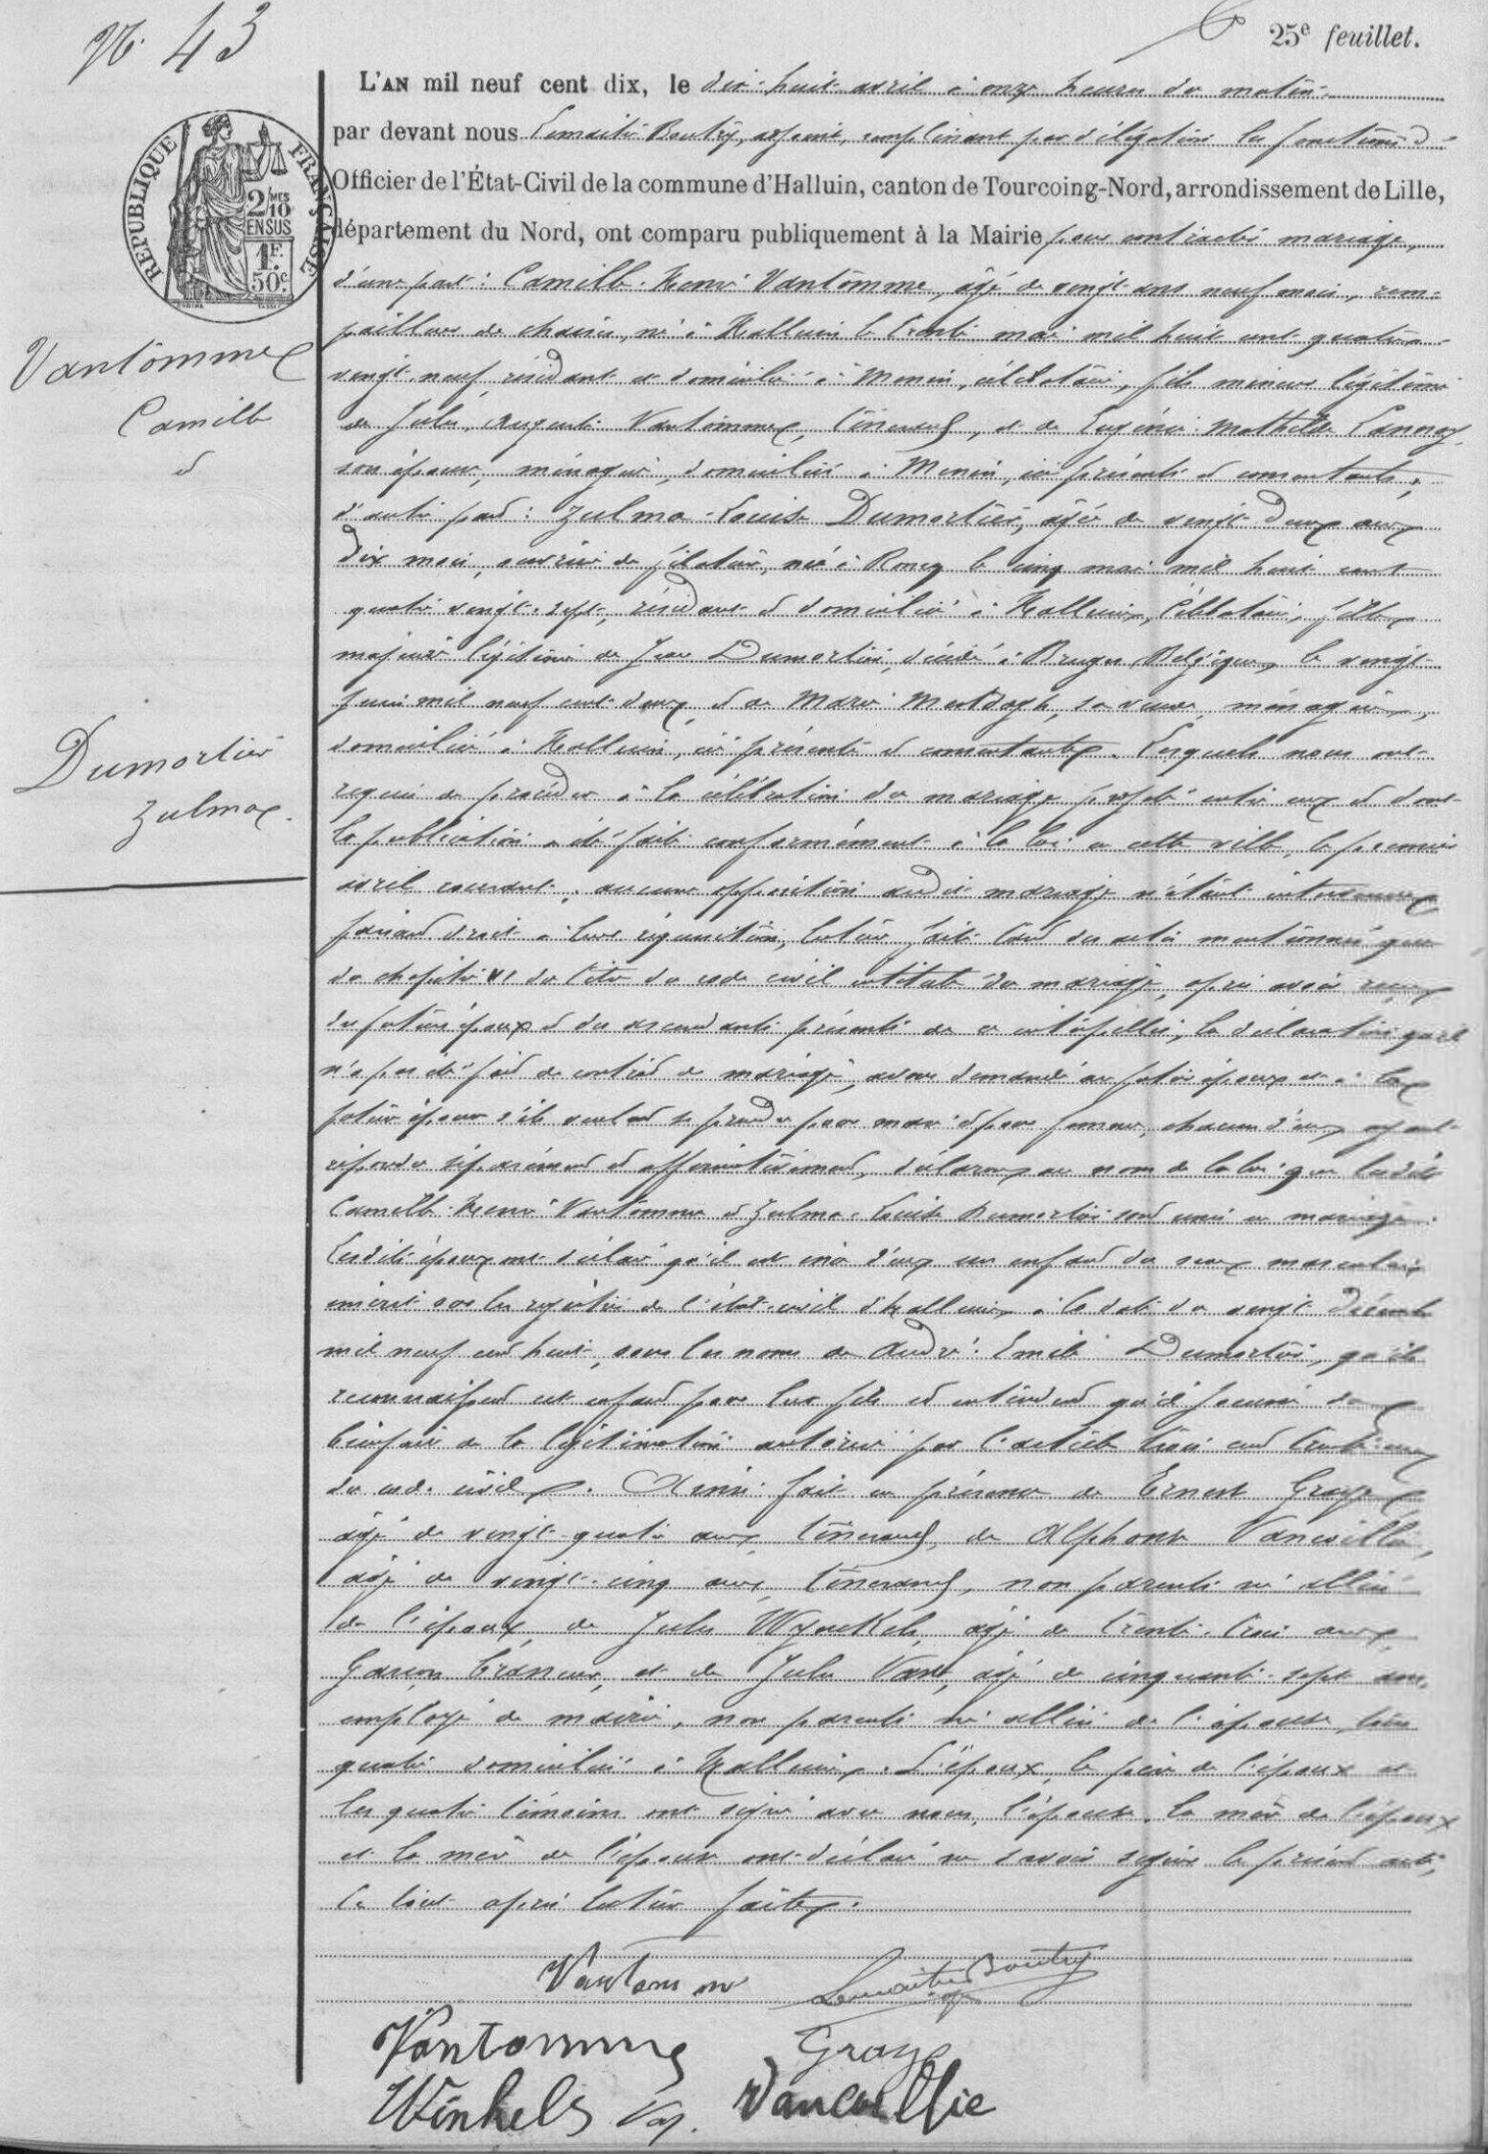 N° 43
25e feuillet.
L'AN mil neuf cent dix, le dix-huit avril à onze heures du matin
par devant nous Lemaitre Boutry, adjoint, remplissant par délégation les fonctions d'
Officier de l'État-Civil de la commune d'Halluin, canton de Tourcoing-Nord, arrondissement de Lille,
département du Nord, ont comparu publiquement à la Mairie pour contracter mariage,
d'une part: Camille Henri Vantomme, âgé de vingt ans neuf mois, rem-
pailleur de chaises, né à Halluin le trente mai mil huit cent quatre
vingt neuf, résidant et domicilié à Menin, célibataire, fils mineur légitime
de Jules Auguste Vantomme, tisserand, et de Eugénie Mathilde Lannoy
son épouse, ménagère, domiciliés à Menin, ici présents et consentants;
d'autre part: Zulma Louise Dumortier, âgée de vingt deux ans
dix mois, ouvrière de filature, née à Roncq le cinq mai mil huit cent
quatre vingt-sept, résidant et domiciliée à Halluin, célibataire, fille
majeure légitime de Jean Dumortier, décédé à Bruges, Belgique, le vingt
juin mil neuf cent deux, et de Marie Mestdagh, sa veuve, ménagère,
domiciliée à Halluin, ici présente et consentante. Lesquels nous ont
requis de procéder à la célébration du mariage projeté entre eux et dont
la publication a été faite conformément à la loi en cette ville, le premier
avril courant; aucune opposition audit mariage n'étant intervenue
faisant droit à leur réquisition, lecture faite tant des actes mentionnés que
du chapitre VI du titre du code civil intitulé du mariage, après avoir reçu
des futurs époux et des ascendants présents de ce interpellés, la déclaration qu'il
n'a pas été fait de contrat de mariage, avons demandé au futur époux et à la
future épouse s'ils veulent se prendre pour mari et pour femme, chacun d'eux ayant
répondu séparément et affirmativement, déclarons au nom de la loi que lesdits
Camille Henri Vantomme et Zulma Louise Dumortier sont unis en mariage.
Lesdits époux ont déclaré qu'il est né d'eux un enfant du sexe masculin
inscrit sur les registres de l'état-civil d'Halluin à la date du vingt décembre
mil neuf cent huit, sous les noms de André Emile Dumortier, qu'ils
reconnaissent cet enfant pour leur fils et entendent qu'il jouisse du
bienfait de la légitimation autorisé par l'article trois cent trente-un
du code civil. Ainsi fait en présence de Ernest Graye
âgé de vingt-quatre ans, tisserand, de Alphonse Vancoillie,
âgé de vingt-cinq ans, tisserand, non parents ni alliés
de l'époux, de Jules Wynckels, âgé de trente-trois ans,
garçon brasseur, et de Jules Van, âgé de cinquante-sept ans,
employé de mairie, non parents ni alliés de l'épouse, tous
quatre domiciliés à Halluin. L'époux, le père de l'époux et
les quatre témoins ont signé avec nous, l'épouse, la mère de l'époux
et la mère de l'épouse ont déclaré ne savoir signer le présent acte,
le tout après lecture faite.
Vantomme
Lemaitre Boutry
Vantomme
Graye
Winkels
Vancoillie
RÉPUBLIQUE FRANÇAISE
2/10 MES
EN SUS
1F.
50c.
Vantomme
Camille
et
Dumortier
Zulma.